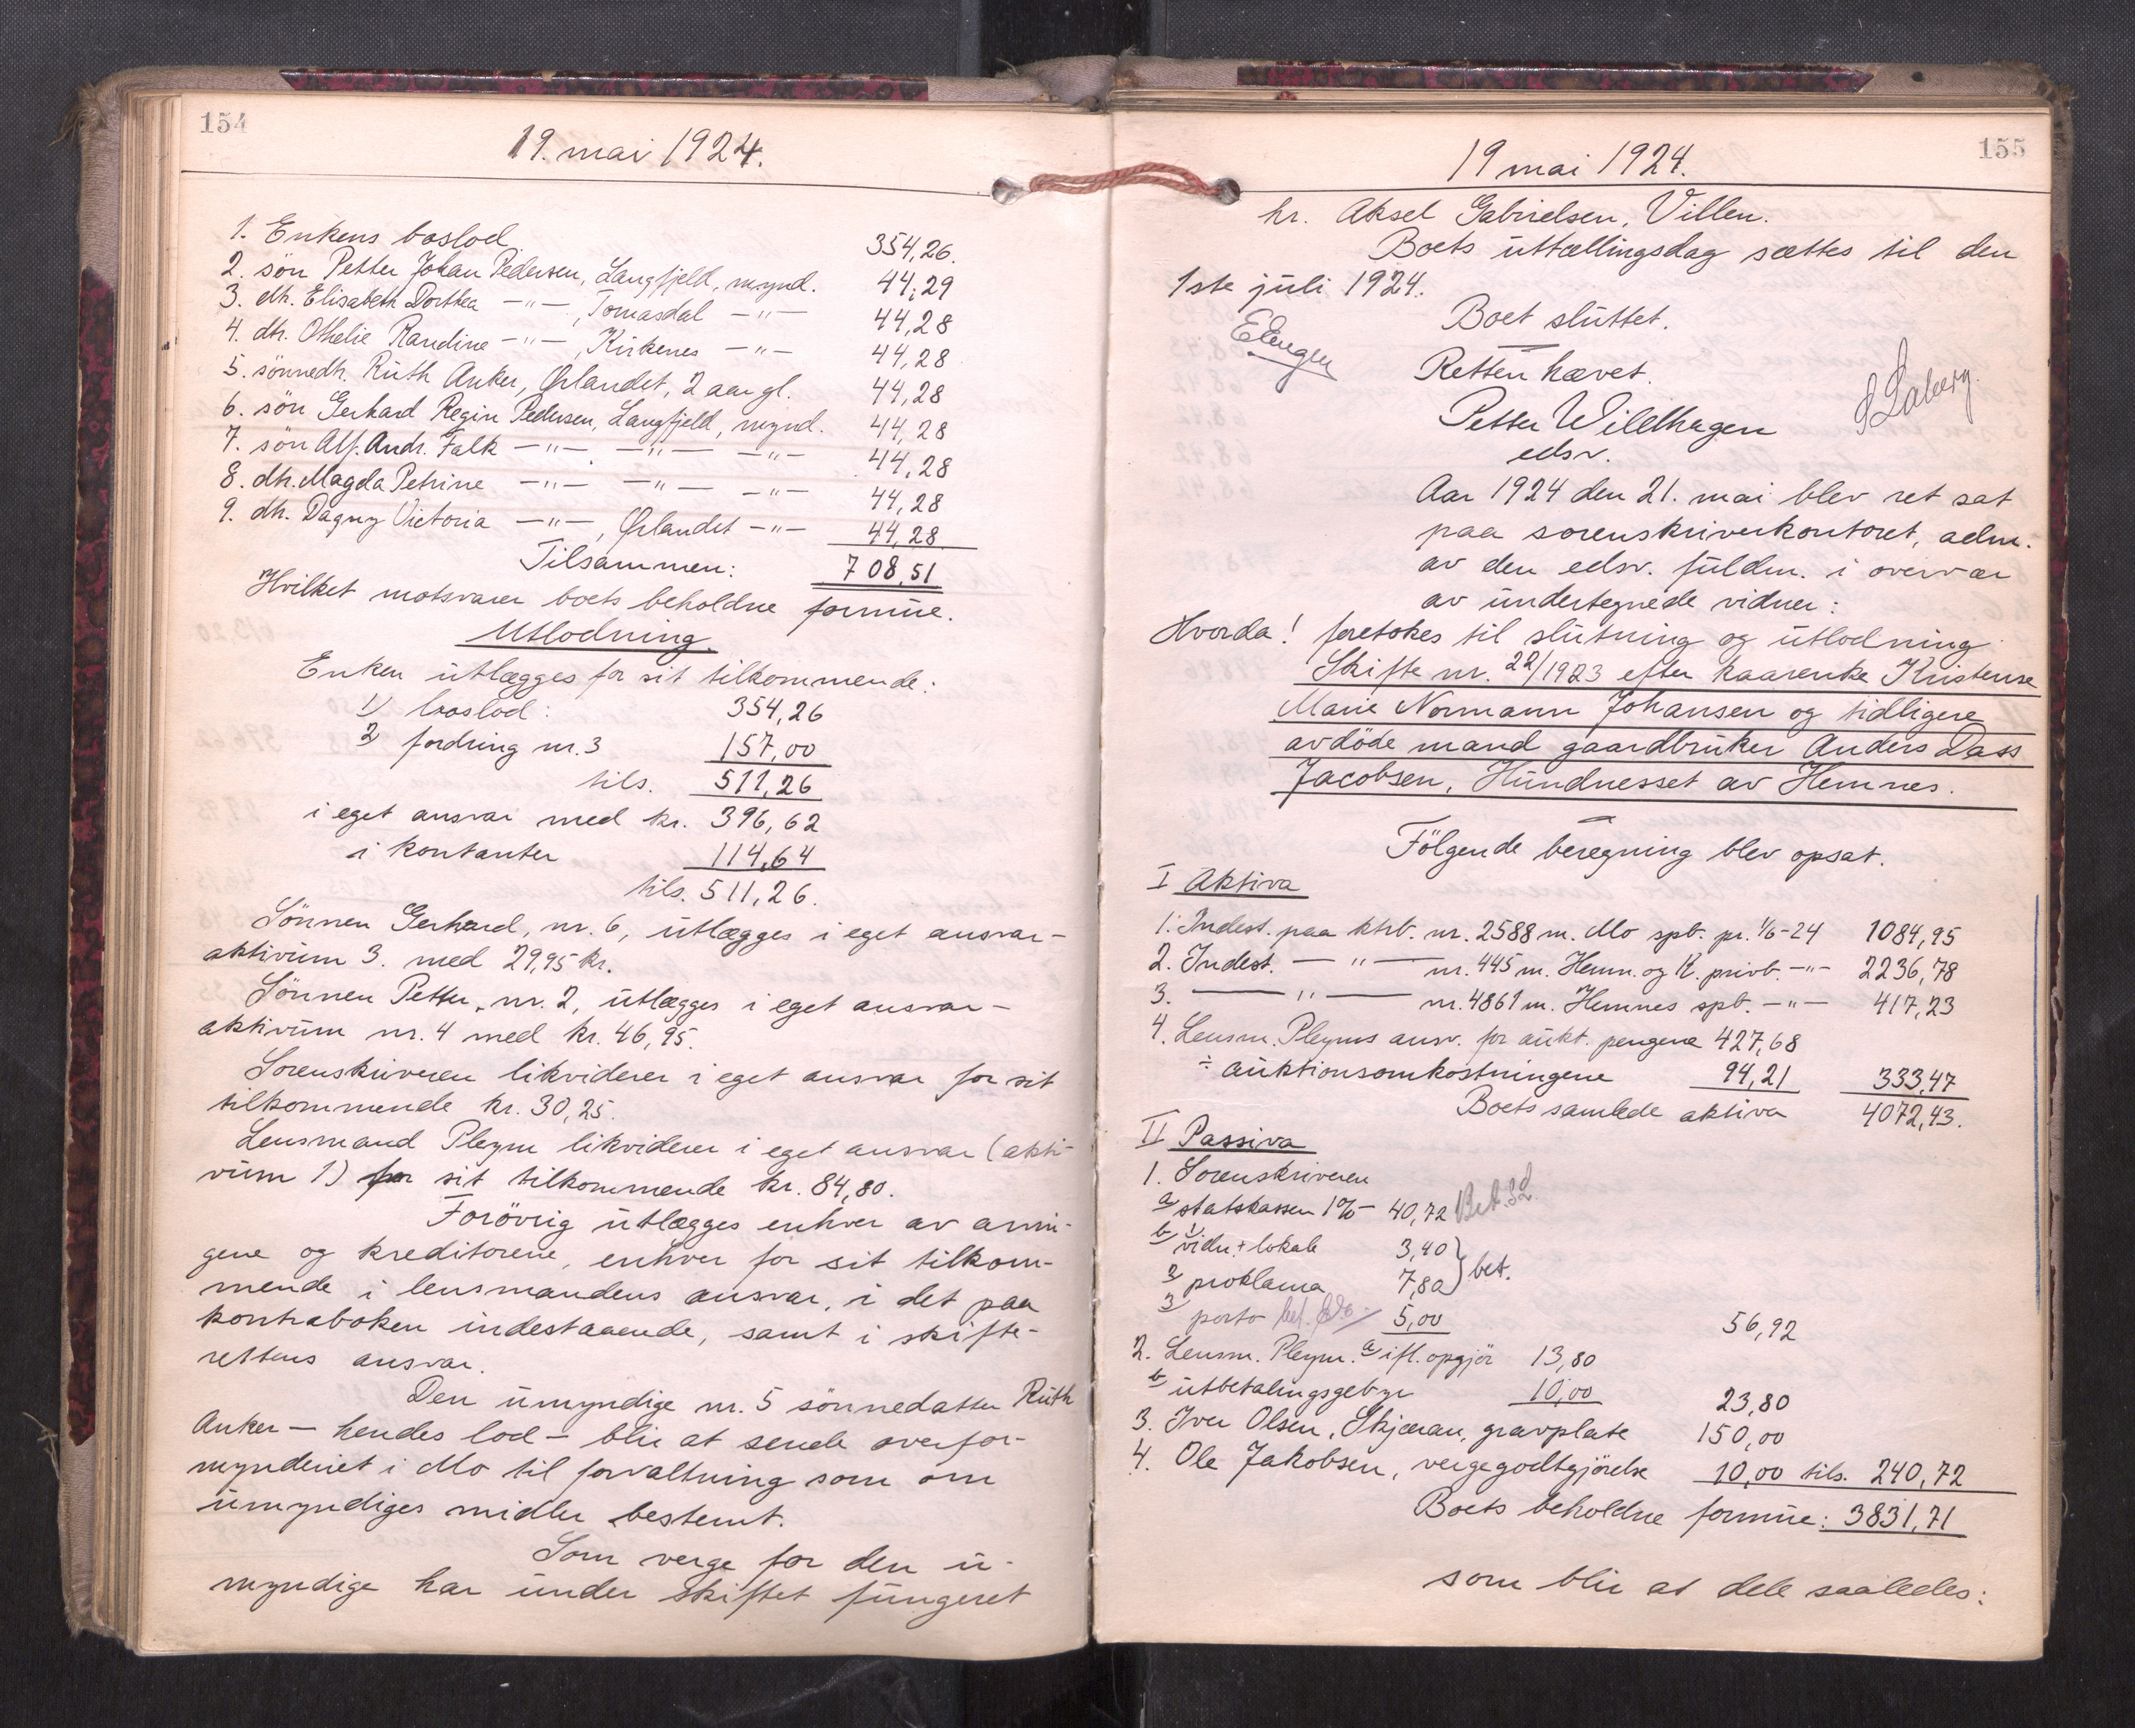 154
19. mai 1924.
1. Enkens boslod. 354,26.
2. sön Petter Johan Pedersen, Langfjeld, mynd. 44,29
3. dtr. Elisabeth Dorthea —"— , Tomasdal —"— 44,28
4. dtr. Othelie Randine —"— , Kirkenes —"— 44,28
5. sönnedtr. Ruth Anker, Ørlandet, 2 aar gl. 44,28
6. sön Gerhard Regin Pedersen, Langfjeld, mynd. 44,28
7. sön Alf. Andr. Falk —"— . —"— —"— 44,28
8. dtr. Magda Petrine —"— —"— —"— 44,28
9. dtr. Dagny Victoria —"— , Ørlandet —"— 44,28
Tilsammen: 708,51
Hvilket motsvarer boets beholdne formue.
Utlodning.
Enken utlægges for sit tilkommende:
1) boslod: 354,26
2) fordring nr. 3 157,00
tils. 511,26
i eget ansvar med kr. 396,62
i kontanter 114,64
tils. 511,26.
Sönnen Gerhard, nr. 6, utlægges i eget ansvar-
aktivum 3. med 29,95 kr.
Sönnen Petter, nr. 2, utlægges i eget ansvar-
aktivum nr. 4 med kr. 46,95.
Sorenskriveren likviderer i eget ansvar for sit
tilkommende kr. 30,25.
Lensmand Pleym likviderer i eget ansvar (akti-
vum 1) for sit tilkommende kr. 84,80.
Forövrig utlægges enhver av arvin-
gene og kreditorene, enhver for sit tilkom-
mende i lensmandens ansvar, i det paa
kontraboken indestaaende, samt i skifte-
rettens ansvar.
Den umyndige nr. 5 sönnedatter Ruth
Anker — hendes lod — blir at sende overfor-
mynderiet i Mo til forvaltning som om
umyndiges midler bestemt.
Som verge for den u-
myndige har under skiftet fungeret
155
19 mai 1924.
hr. Aksel Gabrielsen, Villen.
Boets uttællingsdag sættes til den
1ste juli 1924.
Boet sluttet.
Retten hævet.
Petter Willhagen
edsv.
Aar 1924 den 21. mai blev ret sat
paa sorenskriverkontoret, adm.
av den edsv. fuldm. i overvær
av undertegnede vidner:
Hvorda! foretokes til slutning og utlodning
Skifte nr. 22/1923 efter kaarenke Kristense
Marie Normann Johansen og tidligere
avdöde mand gaardbruker Anders Dass
Jacobsen, Hundnesset av Hemnes.
Fölgende beregning blev opsat.
I Aktiva
1. Indest. paa ktrb. nr. 2588 m. Mo spb. pr. 1/6-24 1084,95
2. Indest. —"— nr. 445 m. Hemn. og K. privb. —"— 2236,78
3. —"— nr. 4861 m. Hemnes spb. —"— 417,23
4. Lensm. Pleyms ansv. for aukt. pengene 427,68
÷ auktionsomkostningene 94,21 333,47
Boets samlede aktiva 4072,43.
II Passiva
1. Sorenskriveren
a) statskassen 1% — 40,72 Bet. SL
b) 1) vidn. + lokale 3,40
2) proklama 7,80 } bet.
3) porto bet. 5,00 56,92
2. Lensm. Pleym. a) ifl. opgjör 13,80
b) utbetalingsgebyr 10,00 23,80
3. Iver Olsen, Skjæran, gravplate 150,00
4. Ole Jakobsen, vergegodtgjörelse 10,00 tils. 240,72
Boets beholdne formue: 3831,71
som blir at dele saaledes: